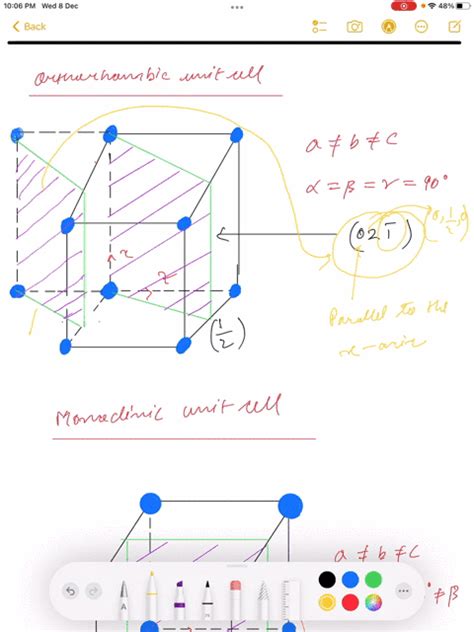 10:06 PM Wed 8 Dec
48%
Back
Orthorhombic unit cell
a ≠ b ≠ c
α = β = γ = 90°
(02T̄)
Parallel to the
x-axis
(1/2)
Monoclinic unit cell
a ≠ b ≠ c
° ≠ β
A